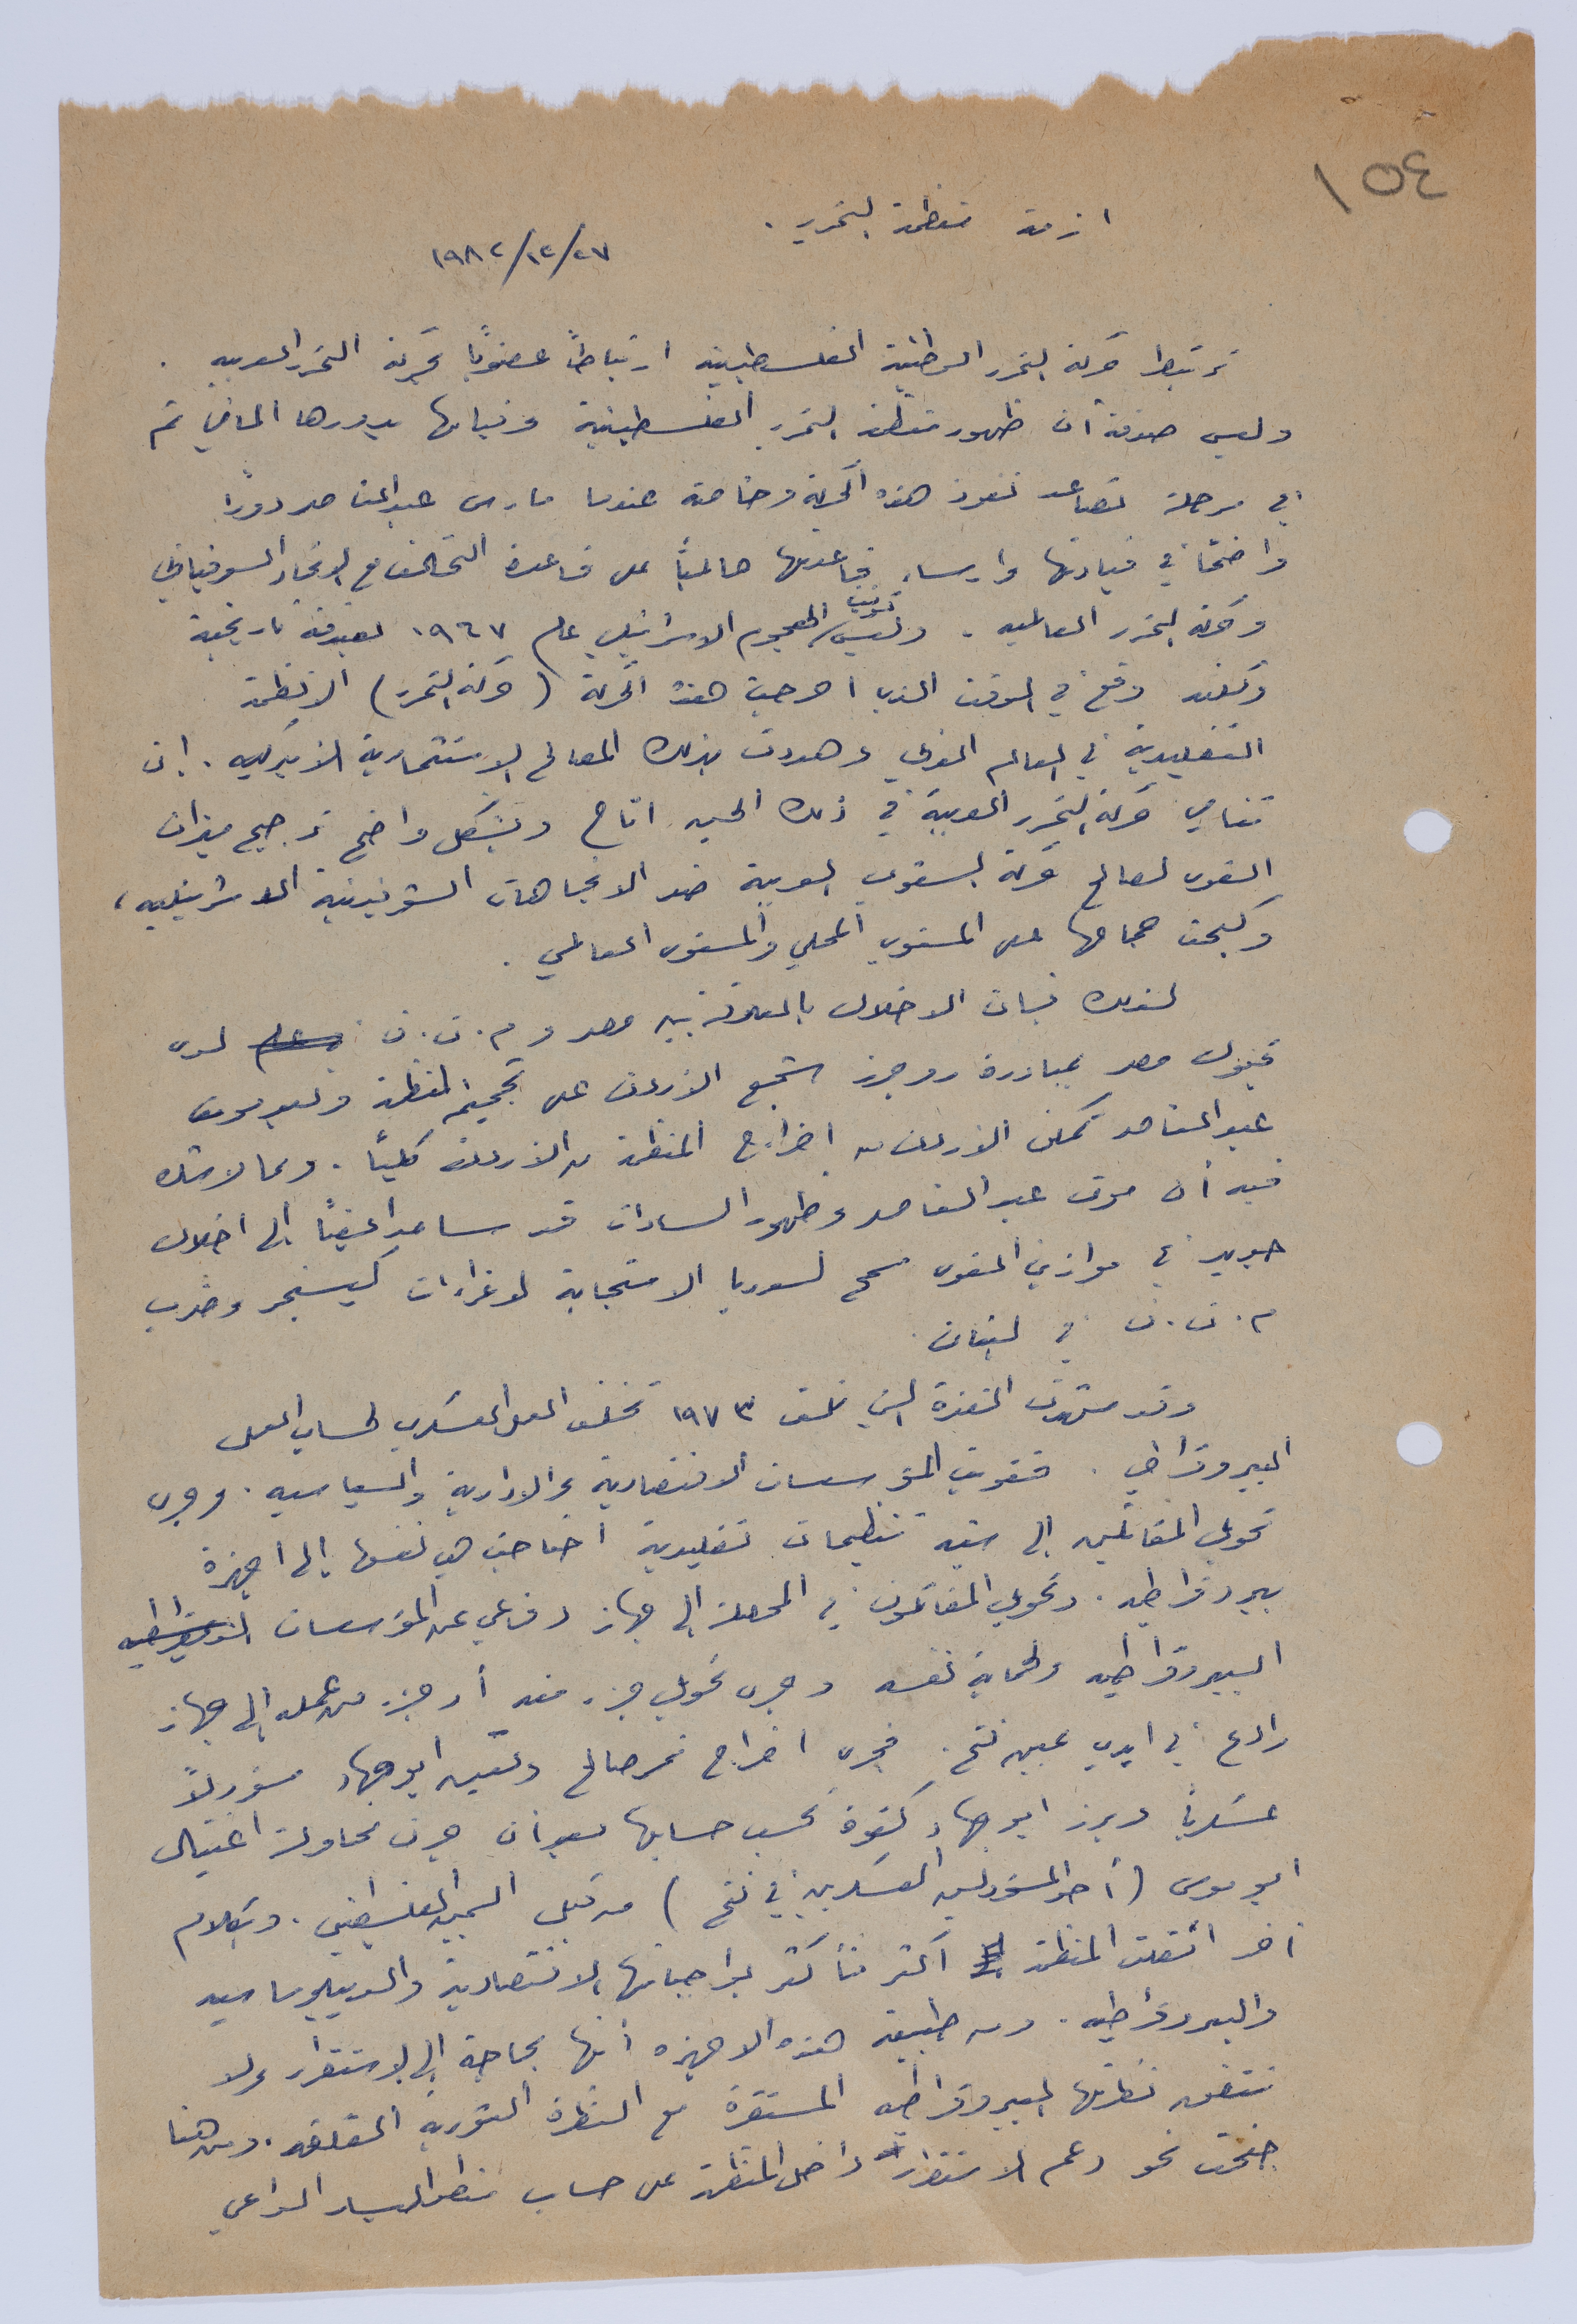 ١٥٤
ازمة منظمة التحرير .
١٩٨٢/١٢/٢٧
ترتبط حركة التحرر الوطنية الفلسطينية ارتباطاً عضوياً بحركة التحرر العربيه .
وليس صدفة أن ظهور منظمة التحرير الفلسطينية وقيامها بدورها الماضي تم
في مرحلة تصاعد نفوذ هذه الحركة وخاصة عندما مارس عبد الناصر دوراً
واضحاً في قيادتها وارساء قاعدتها عالمياً على قاعدة التحالف مع الاتحاد السوفياتي
وحركة التحرر العالميه . وليس توقيت الهجوم الاسرائيلي عام ١٩٦٧ لصدفة تاريخية
ولكنه وقع في الوقت الذي احرجت هذه الحركة (حركة التحرر) الانظمة
التقليدية في العالم العربي وهددت بذلك المصالح الاستثمارية الامريكيه . إن
تنامي حركة التحرر العربية في ذلك الحين اتاح وبشكل واضح ترجيح ميزان
القوى لصالح حركة الشعوب العربية ضد الاتجاهات الشوفينية الاسرائيليه ،
وكبحت جماحها على المستوى المحلي والمستوى العالمي .
لذلك فإن الاخلال بالعلاقة بين مصر و م.ت.ف لدى
قبول مصر بمبادرة روجرز شجع الاردن على تحجيم المنظمة وبعد موت
عبد الناصر تمكن الاردن من اخراج المنظمة من الاردن كلياً . ومما لا شك
فيه أن موت عبد الناصر وظهور السادات قد ساعد ايضاً إلى اخلال
جديد في موازين القوى سمح لسوريا الاستجابة لاغراءات كيسنجر وضرب
م.ت.ف في لبنان .
وقد شهدت الفترة التي تلت ١٩٧٣ تخلف العمل العسكري لحساب العمل
البيروقراطي . فقويت المؤسسات الاقتصادية والادارية والسياسيه . وجرى
تحويل المقاتلين إلى شبه تنظيمات تقليدية احتاجت هي نفسها إلى اجهزة
بيروقراطيه . وتحويل المقاتلون في المحصلة إلى جهاز دفاعي عن المؤسسات
البيروقراطيه ولحماية نفسه وجرى تحويل جزء منه أو جزء من عمله إلى جهاز
رادع في ايدي يمين فتح . فجرى اخراج نمر صالح وتعيين ابو جهاد مسؤولاً
عسكرياً وبرز ابو جهاد كقوة يحسب حسابها بعد أن جرت محاولة اغتيال
ابو موسى (أحد المسؤولين العسكريين في فتح) من قبل اليمين الفلسطيني . وبكلام
آخر اثقلت المنظمة أكثر فأكثر بواجباتها الاقتصادية والدبلوماسيه
والبيروقراطيه . ومن طبيعة هذه الاجهزه أنها بحاجة إلى الاستقرار ولا
تتفق نظرتها البيروقراطيه المستقرة مع النظرة الثوريه القلقه . ومن هنا
جنحت نحو دعم الاستقرار داخل المنظمة على حساب منطق اليسار الداعي